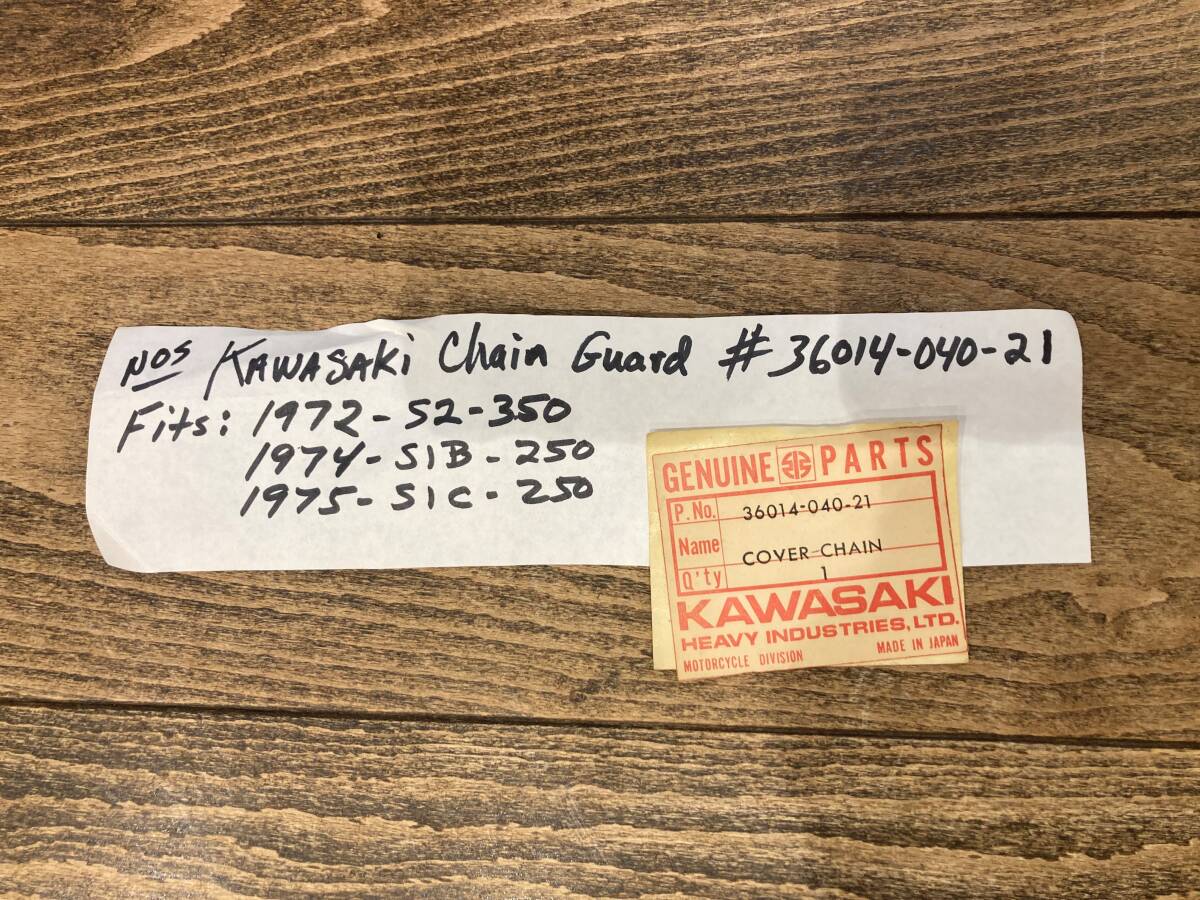 NOS KAWASAKi Chain Guard #36014-040-21
Fits: 1972-S2-350
1974-S1B-250
1975-S1C-250
GENUINE PARTS
P.No. 36014-040-21
Name COVER-CHAIN
Q'ty 1
KAWASAKI
HEAVY INDUSTRIES, LTD.
MOTORCYCLE DIVISION MADE IN JAPAN